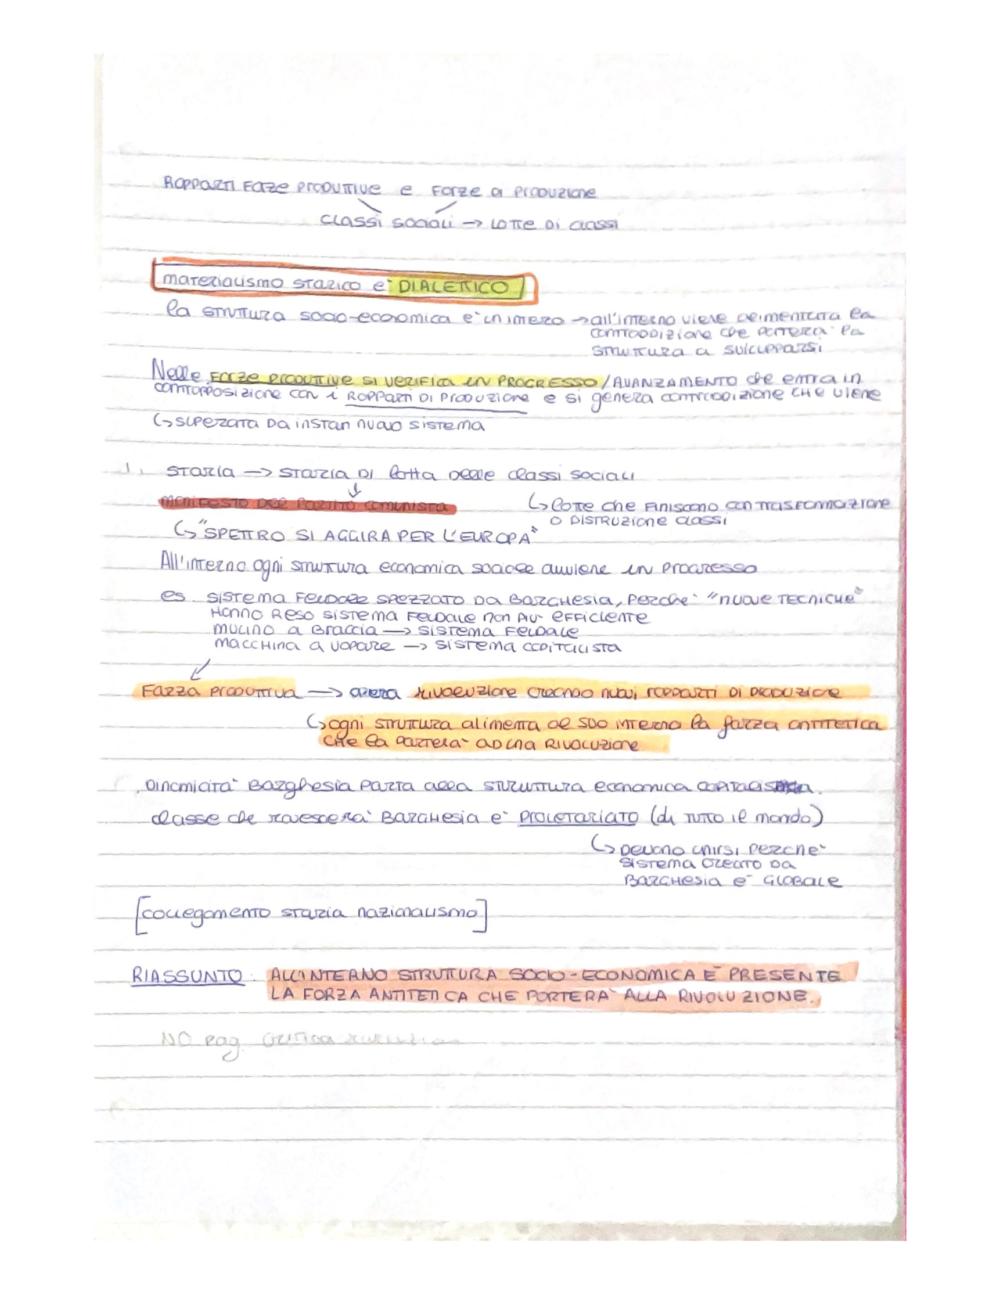 RAPPORTI FORZE PRODUTTIVE e FORZE DI PRODUZIONE
CLASSI SOCIALI → LOTTE DI CLASSI
MATERIALISMO STORICO E' DIALETTICO
la STRUTTURA SOCIO-ECONOMICA E' → all'INTERNO VIENE ALIMENTATA la
CONTRADDIZIONE CHE PORTERA' la
STRUTTURA A SVILUPPARSI
Nelle FORZE PRODUTTIVE SI VERIFICA UN PROGRESSO/AVANZAMENTO che entra in
CONTRAPPOSIZIONE CON i RAPPORTI DI PRODUZIONE e SI genera CONTRADDIZIONE CHE VIENE
↳ SUPERATA DA NUOVO SISTEMA
1. STORIA → STORIA DI lotta delle CLASSI SOCIALI
MANIFESTO DEL PARTITO COMUNISTA
↳ lotte che FINISCONO CON TRASFORMAZIONE
O DISTRUZIONE CLASSI
↳ "SPETTRO SI AGGIRA PER L'EUROPA"
All'INTERNO ogni STRUTTURA ECONOMICA SOCIALE AVVIENE UN PROGRESSO
es. SISTEMA FEUDALE SPEZZATO DA BORGHESIA, PERCHE' "NUOVE TECNICHE"
HANNO RESO SISTEMA FEUDALE NON PIU' EFFICIENTE
MULINO A BRACCIA → SISTEMA FEUDALE
MACCHINA A VAPORE → SISTEMA CAPITALISTA
FORZA PRODUTTIVA → opera RIVOLUZIONE CREANDO nuovi RAPPORTI DI PRODUZIONE
↳ ogni STRUTTURA alimenta al SUO INTERNO la forza ANTITETICA
CHE la PORTERA' AD UNA RIVOLUZIONE
DINAMICITA' BORGHESIA PORTA alla STRUTTURA ECONOMICA CAPITALISTA.
classe che rovescera' BORGHESIA e' PROLETARIATO (di TUTTO il mondo)
↳ DEVONO UNIRSI PERCHE'
SISTEMA CREATO DA
BORGHESIA E' GLOBALE
[collegamento storia nazionalismo]
RIASSUNTO: ALL'INTERNO STRUTTURA SOCIO-ECONOMICA E' PRESENTE
LA FORZA ANTITETICA CHE PORTERA' ALLA RIVOLUZIONE.
NO pag.